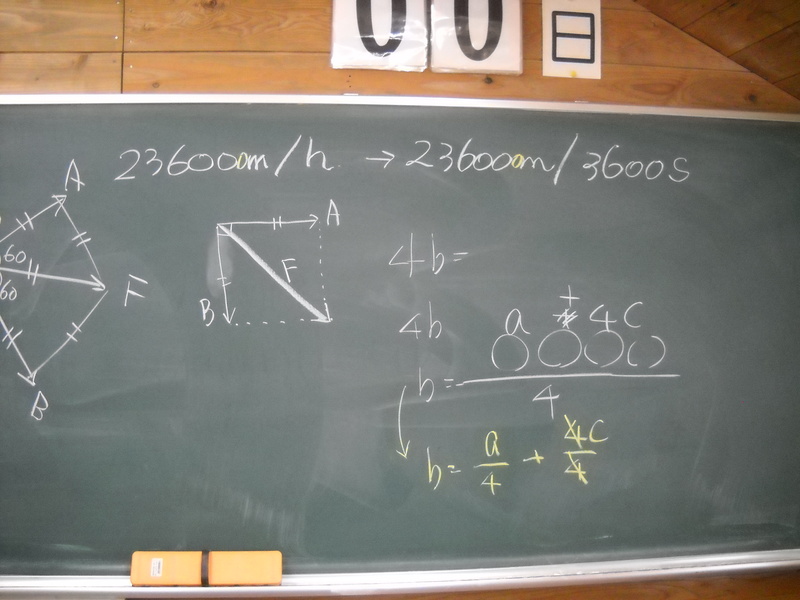 00日
23600m/h → 23600m/3600s
A
60
60
F
B
A
F
B
4b=
4b
a + 4c
b=
4
b= a/4 + 4c/4